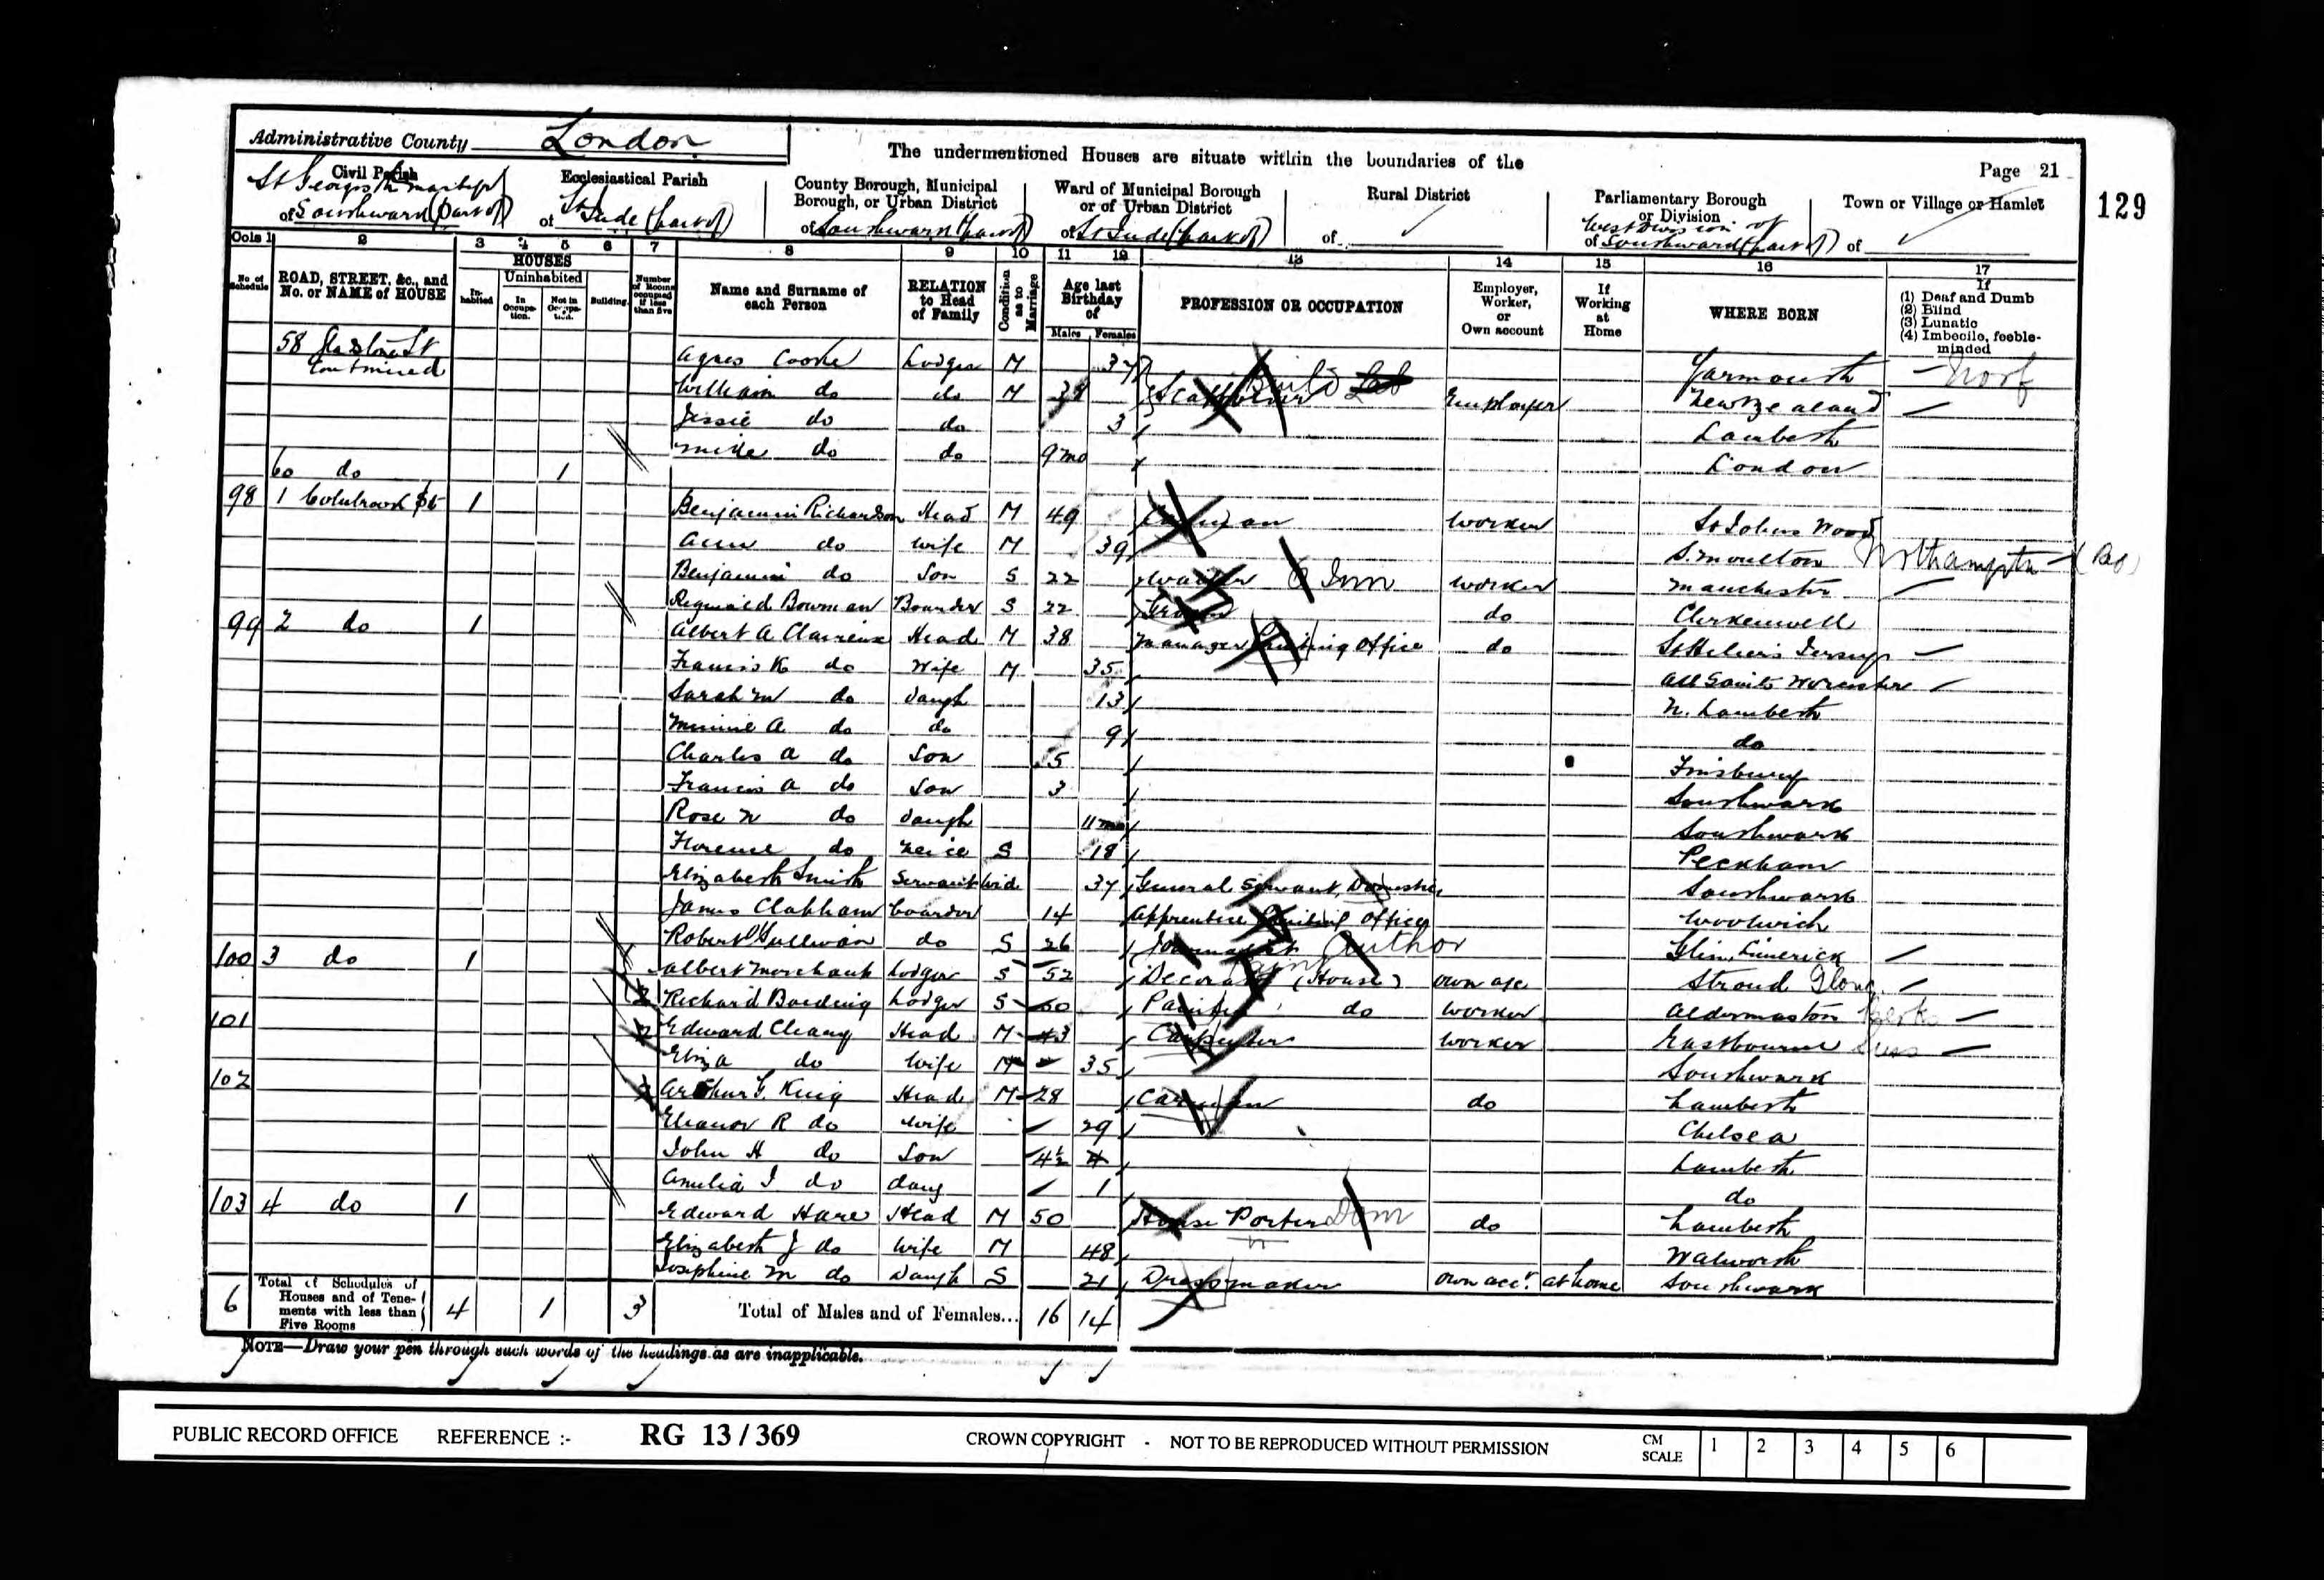 Administrative County London
The undermentioned Houses are situate within the boundaries of the
Page 21
129
Civil Parish
of Southwark (part of)
Ecclesiastical Parish
of St Jude (part of)
County Borough, Municipal Borough, or Urban District
of Southwark (part of)
Ward of Municipal Borough or of Urban District
of St Jude (part of)
Rural District
of
Parliamentary Borough or Division
of West Division of Southwark (part of)
Town or Village or Hamlet
of
Cols 1 2 3 4 5 6 7 8 9 10 11 12 13 14 15 16 17
No. of Schedule
ROAD, STREET, &c., and No. or NAME of HOUSE
HOUSES
Inhabited
Uninhabited
In Occupation.
Not in Occupation.
Building.
Number of Rooms occupied if less than five
Name and Surname of each Person
RELATION to Head of Family
Condition as to Marriage
Age last Birthday of
Males Females
PROFESSION OR OCCUPATION
Employer, Worker, or Own account
If Working at Home
WHERE BORN
If
(1) Deaf and Dumb
(2) Blind
(3) Lunatic
(4) Imbecile, feeble-minded
58 Gladstone St Continued Agnes Cooke Lodger M 37 Yarmouth Norf
William do do M 38 Build Lab Employer New Zealand
Jessie do do 3 Lambeth
Mike do do 9 mo London
60 do 1
98 1 Colnbrook St 1 Benjamin Richardson Head M 49 Worker St Johns Wood
Ann do Wife M 39 S. Moulton Northampton
Benjamin do Son S 22 Inn Worker Manchester
Reginald Bowman Boarder S 22 do Clerkenwell
99 2 do 1 Albert A Head M 38 Manager Printing Office do St Heliers Jersey
Francis K do Wife M 35 All Saints Worcester
Sarah M do Daugh 13 N. Lambeth
Minnie A do do 9 do
Charles A do Son 5 Finsbury
Francis A do Son 3 Southwark
Rose N do Daugh 11 mo Southwark
Florence do Neice S 18 Peckham
Elizabeth Smith Servant Wid 37 General Servant, Domestic Southwark
James Clabham Boarder 14 Apprentice Printing Office Woolwich
Robert O'Sullivan do S 26 Journalist Author Glin, Limerick
100 3 do 1 Albert Marchant Lodger S 52 Decorator (House) own acc Stroud Glouc
2 Richard Lodger S 60 Painter do Worker Aldermaston Berks
101 2 Edward Head M 43 Carpenter Worker Eastbourne Suss
Eliza do Wife M 35 Southwark
102 2 Arthur F. King Head M 28 Carman do Lambeth
Eleanor R do Wife 29 Chelsea
John H do Son 4½ Lambeth
Amelia I do daug 1 do
103 4 do 1 Edward Hare Head M 50 House Porter Dom do Lambeth
Elizabeth J do Wife M 48 Walworth
Josephine M do Daugh S 21 Dressmaker own acct. at home Southwark
6 Total of Schedules of Houses and of Tenements with less than Five Rooms 4 1 3 Total of Males and of Females... 16 14
NOTE—Draw your pen through such words of the headings as are inapplicable.
PUBLIC RECORD OFFICE REFERENCE :- RG 13 / 369 CROWN COPYRIGHT - NOT TO BE REPRODUCED WITHOUT PERMISSION CM SCALE 1 2 3 4 5 6